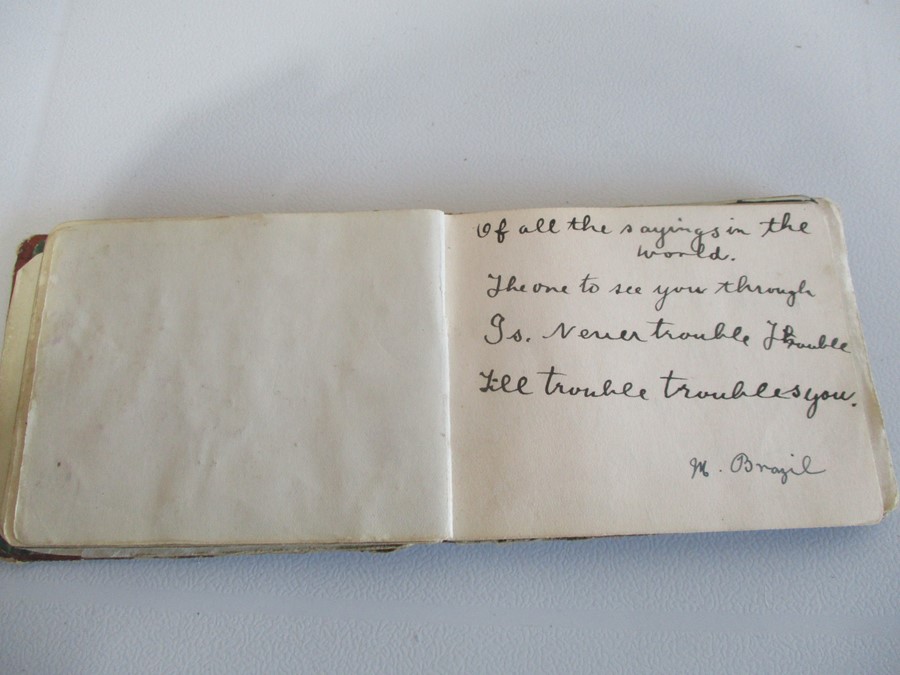 Of all the sayings in the
world.
The one to see you through
Is. Never trouble Trouble
Till trouble troubles you.
M. Brazil